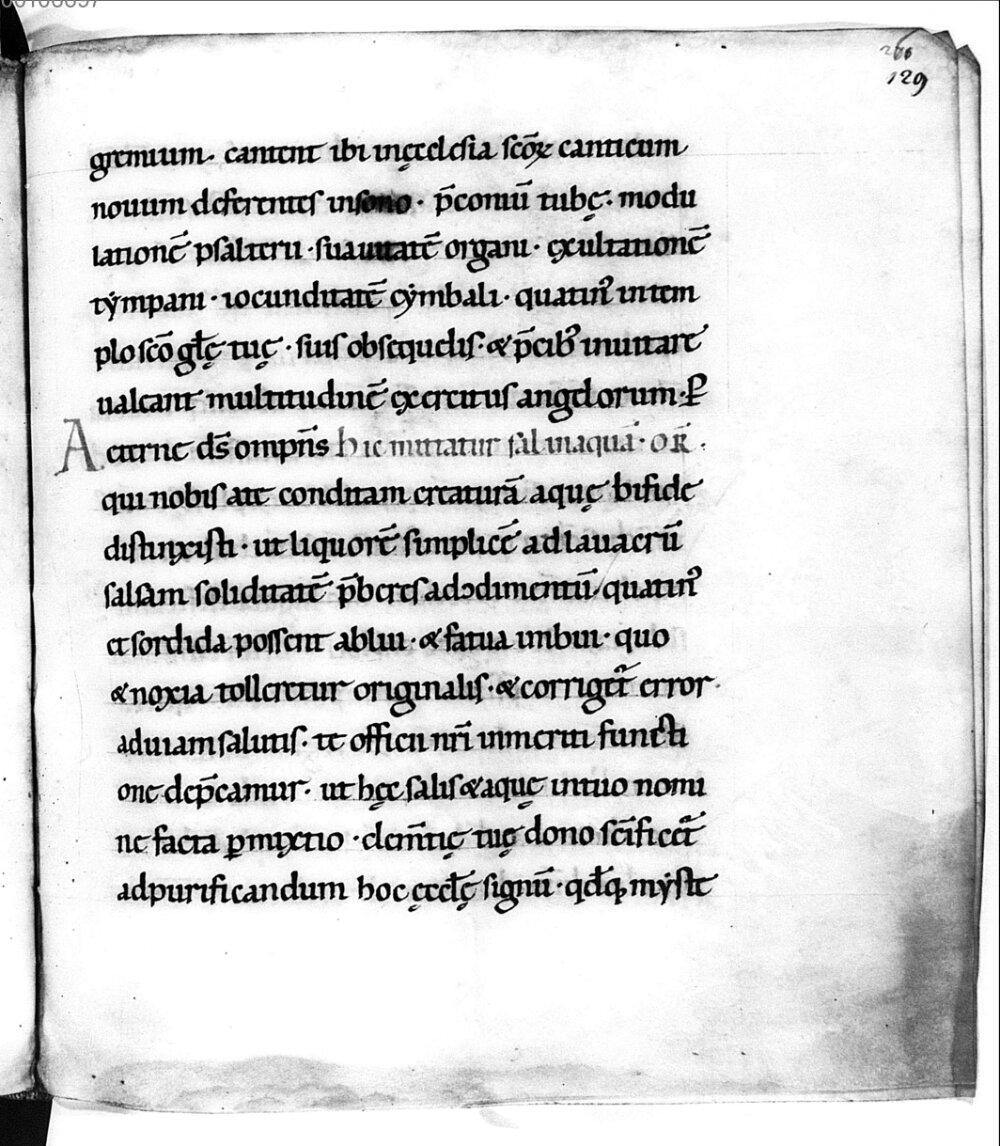 260
129
gremium. cantent ibi inęcclesia sc̄oꝝ canticum
nouum deferentes insono · p̄coniū tubę. modu
lationē psalterii · suauitatē organi · ęxultationē
tẏmpani · iocunditatē cẏmbali · quatin᾽ intem
plo sc̄o gl̄ę tuę · siuis obsequelis · & p̄cib᾽ inuitare
ualeant multitudinē ęxercitus angelorum · P̄
Aeterne ds̄ omp̄ns̄ hic mittatur sal inaqua · oR̄ .
qui nobis a te conditam creaturā aquę bifide
distinxisti · ut liquorē simplicē ad lauacrū
salsam soliditatē p̄beres adↄdimentū, quatin᾽
et sordida possent ablui · & fatua imbui · quo
& noxia tolleretur originalis · & corriger̄ error ·
aduiam salutis · te officii nr̄i inmeriti functi
one dep̄camur · ut hęc salis & aquę intuo nomi
ne facta ꝑmixtio · clem̄tię tuę dono sc̄ificet̄
adpurificandum hoc ęccl̄ę signū · qd̄ꝙ mẏste